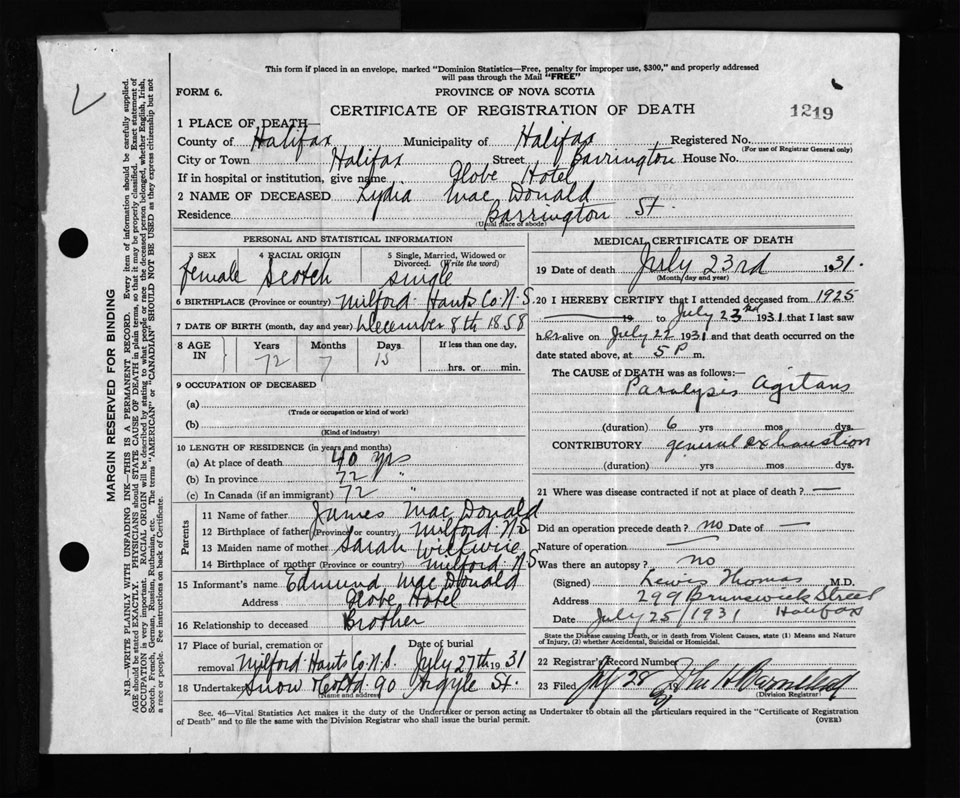 This form if placed in an envelope, marked "Dominion Statistics—Free, penalty for improper use, $300," and properly addressed
will pass through the Mail "FREE"
FORM 6.
PROVINCE OF NOVA SCOTIA
CERTIFICATE OF REGISTRATION OF DEATH
1219
1 PLACE OF DEATH—
County of Halifax Municipality of Halifax Registered No.
(For use of Registrar General only)
City or Town Halifax Street Barrington House No.
If in hospital or institution, give name Globe Hotel
2 NAME OF DECEASED Lydia Mac Donald
Residence Barrington St.
(Usual place of abode)
PERSONAL AND STATISTICAL INFORMATION
3 SEX 4 RACIAL ORIGIN 5 Single, Married, Widowed or Divorced. (Write the word)
female Scotch single
6 BIRTHPLACE (Province or country) Milford Hants Co. N.S.
7 DATE OF BIRTH (month, day and year) December 8th 1858
8 AGE IN Years Months Days If less than one day,
72 7 15 hrs. or min.
9 OCCUPATION OF DECEASED
(a)
(Trade or occupation or kind of work)
(b)
(Kind of industry)
10 LENGTH OF RESIDENCE (in years and months)
(a) At place of death 40 yrs
(b) In province 72 "
(c) In Canada (if an immigrant) 72 "
Parents
11 Name of father James Mac Donald
12 Birthplace of father (Province or country) Milford N.S
13 Maiden name of mother Sarah Wickwire
14 Birthplace of mother (Province or country) Milford N.S
15 Informant's name Edmund Mac Donald
Address Globe Hotel
16 Relationship to deceased Brother
17 Place of burial, cremation or removal Milford Hants Co. N.S. Date of burial July 27th 1931
18 Undertaker Snow & Co Ltd. 90 Argyle St.
(Name and address)
MEDICAL CERTIFICATE OF DEATH
19 Date of death July 23rd 1931.
(Month/day and year)
20 I HEREBY CERTIFY that I attended deceased from 1925
19 to July 23rd 1931 that I last saw
her alive on July 22 1931 and that death occurred on the
date stated above, at 5 P m.
The CAUSE of DEATH was as follows:—
Paralysis Agitans
(duration) 6 yrs mos dys.
CONTRIBUTORY general exhaustion
(duration) yrs mos dys.
21 Where was disease contracted if not at place of death? —
Did an operation precede death? no Date of —
Nature of operation —
Was there an autopsy? no
(Signed) Lewis Thomas M.D.
Address 299 Brunswick Street
Date July 25/1931 Halifax
State the Disease causing Death, or in death from Violent Causes, state (1) Means and Nature of Injury, (2) whether Accidental, Suicidal or Homicidal.
22 Registrar's Record Number
23 Filed July 28
(Division Registrar)
Sec. 46—Vital Statistics Act makes it the duty of the Undertaker or person acting as Undertaker to obtain all the particulars required in the "Certificate of Registration
of Death" and to file the same with the Division Registrar who shall issue the burial permit.
(OVER)
MARGIN RESERVED FOR BINDING
N.B.—WRITE PLAINLY WITH UNFADING INK—THIS IS A PERMANENT RECORD. Every item of information should be carefully supplied.
AGE should be stated EXACTLY. PHYSICIANS should STATE CAUSE OF DEATH in plain terms, so that it may be properly classified. Exact statement of
OCCUPATION is very important. RACIAL ORIGIN will be described by stating to what people or race the deceased person belonged, whether English, Irish,
Scotch, French, German, Russian, Ruthenian, etc. The terms "AMERICAN" or "CANADIAN" SHOULD NOT BE USED as they express citizenship but not
a race or people. See instructions on back of Certificate.